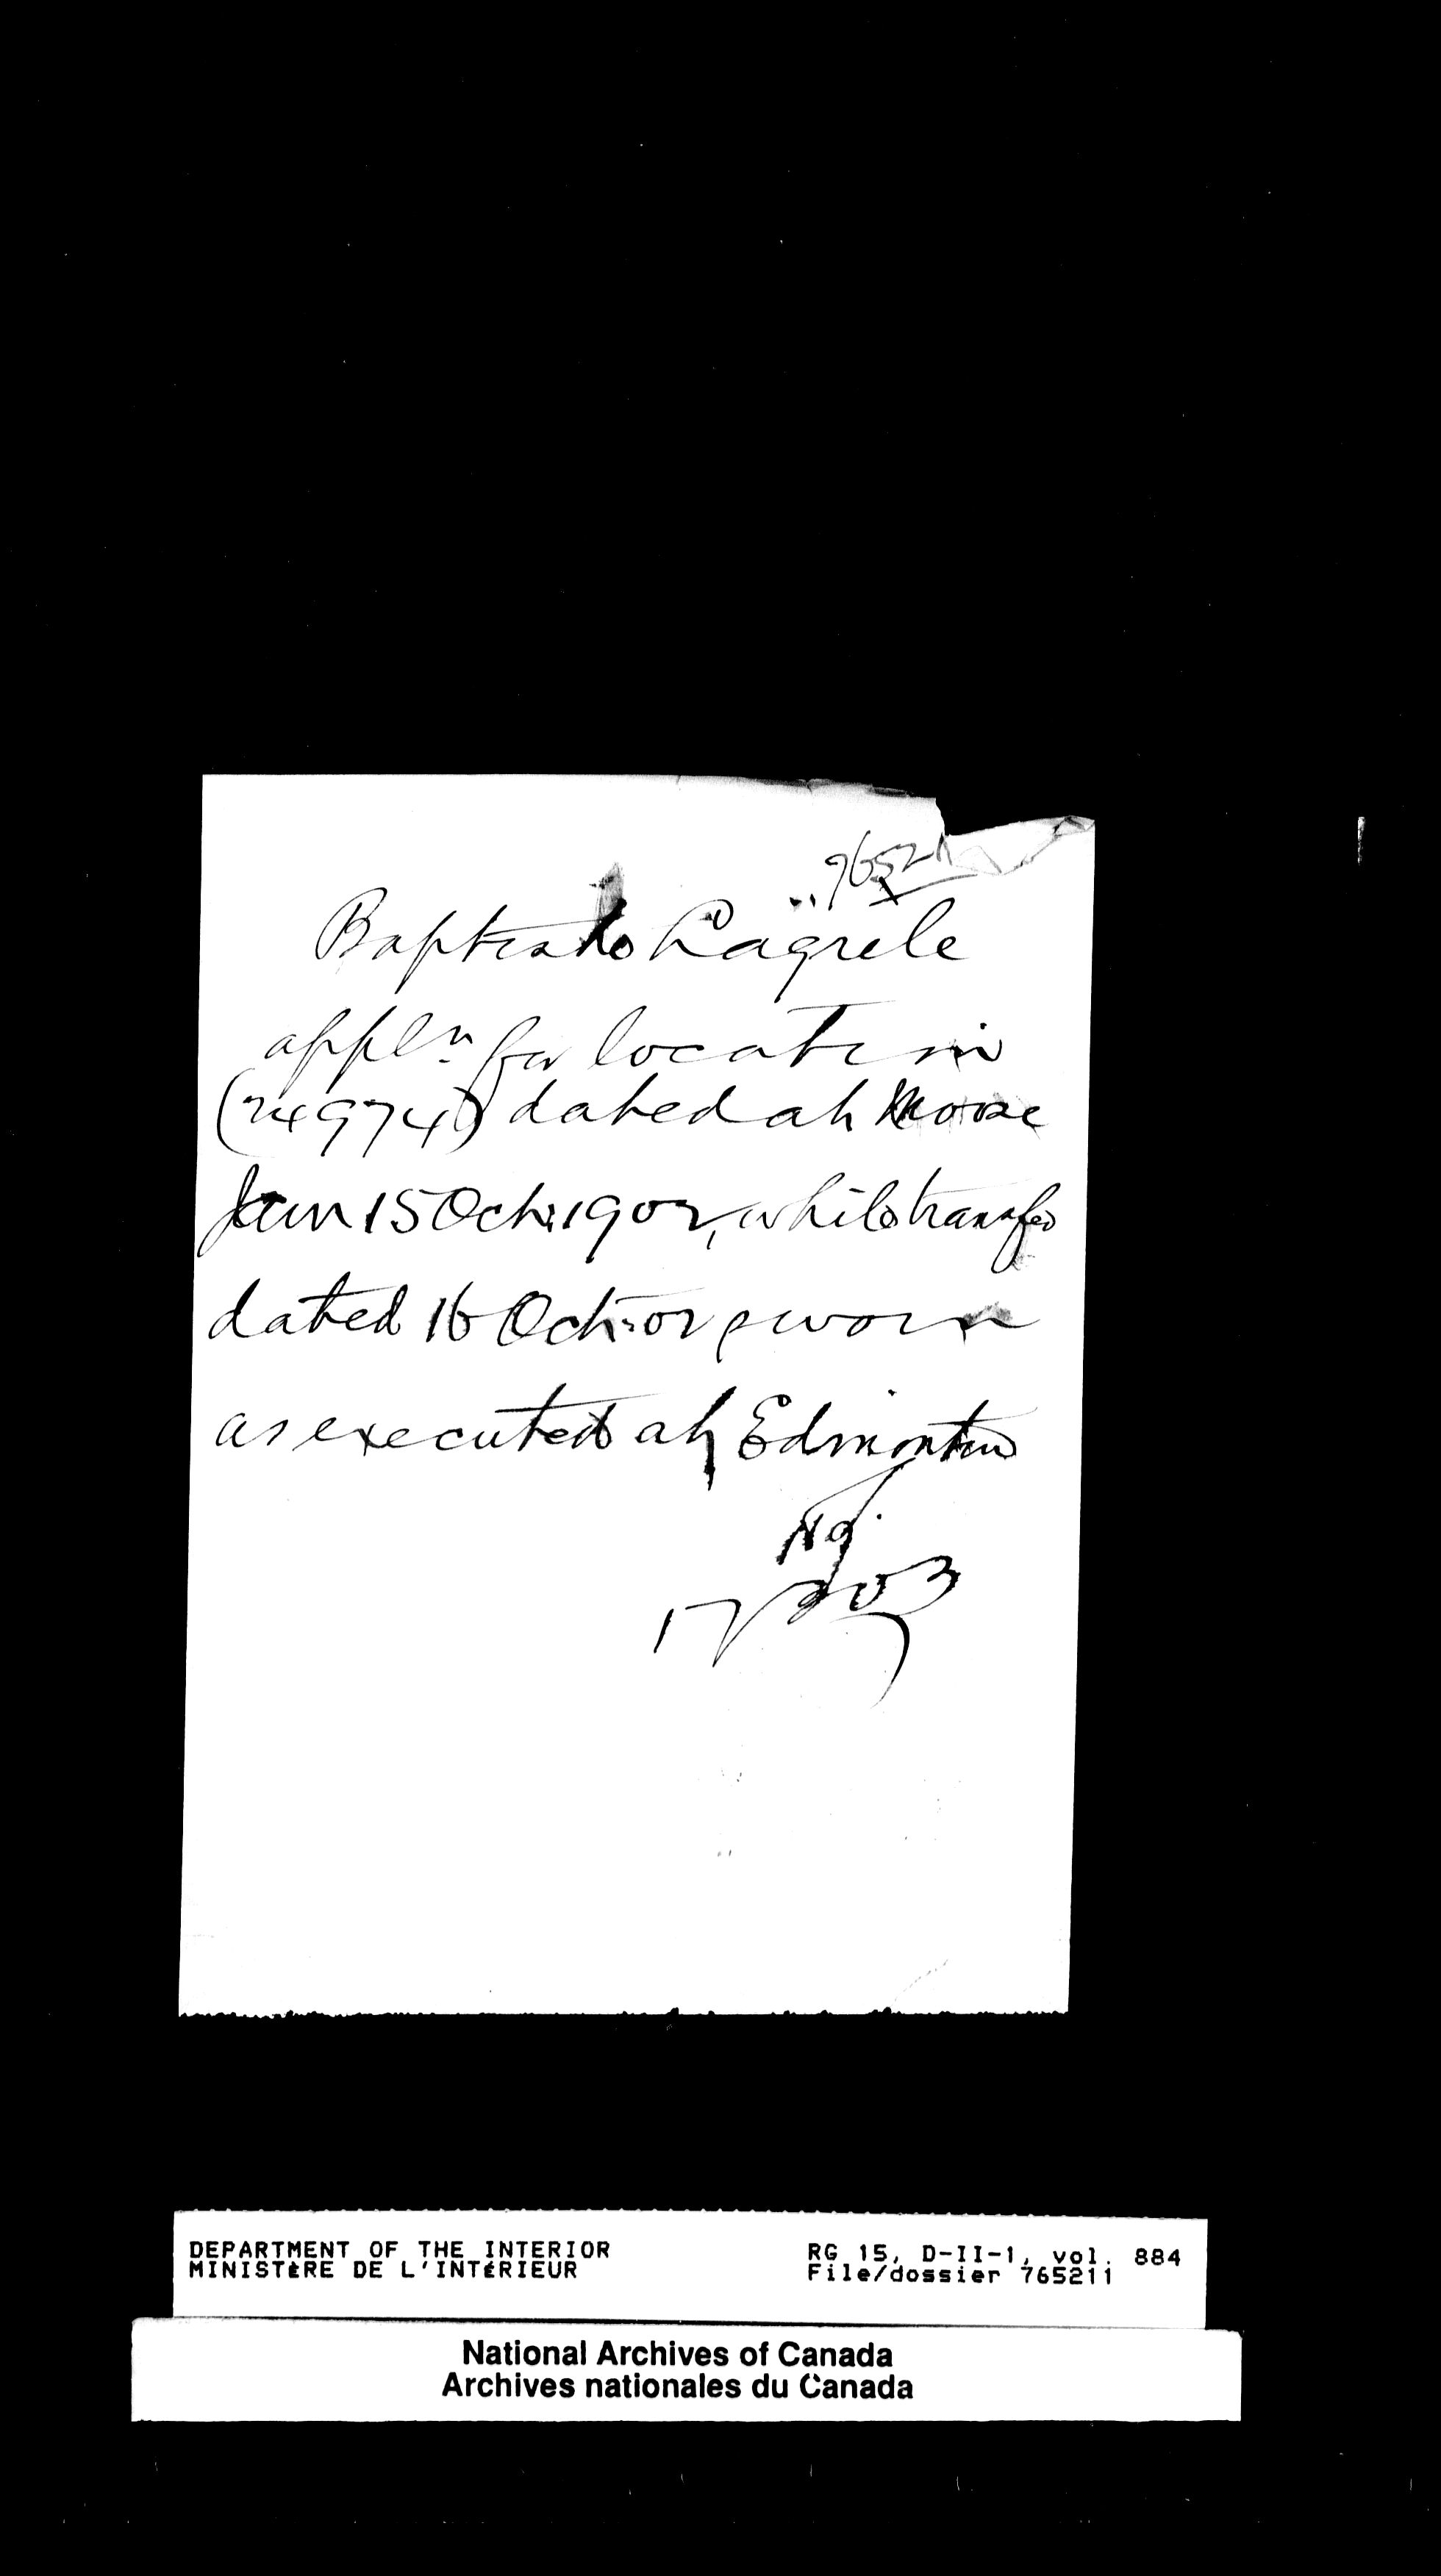 76521
Baptiste Lagrele
appln. for location
(24974) dated at Moose
Jaw 15 Oct. 1902, while transfer
dated 16 Oct. 02 sworn
as executed at Edmonton
DEPARTMENT OF THE INTERIOR
MINISTÈRE DE L'INTÉRIEUR
RG 15, D-II-1, vol. 884
File/dossier 765211
National Archives of Canada
Archives nationales du Canada